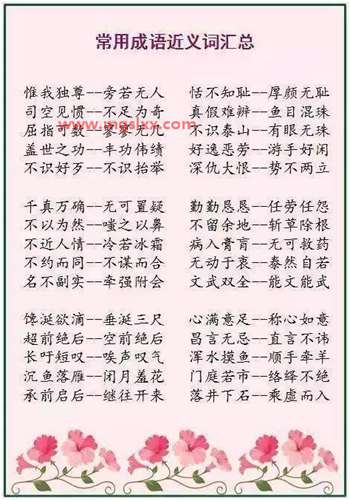 常用成语近义词汇总
惟我独尊--旁若无人
司空见惯--不足为奇
屈指可数--寥寥无几
www.mgslxx.com
盖世之功--丰功伟绩
不识好歹--不识抬举
恬不知耻--厚颜无耻
真假难辨--鱼目混珠
不识泰山--有眼无珠
好逸恶劳--游手好闲
深仇大恨--势不两立
千真万确--无可置疑
不以为然--嗤之以鼻
不近人情--冷若冰霜
不约而同--不谋而合
名不副实--牵强附会
勤勤恳恳--任劳任怨
不留余地--斩草除根
病入膏肓--无可救药
无动于衷--泰然自若
文武双全--能文能武
馋涎欲滴--垂涎三尺
超前绝后--空前绝后
长吁短叹--唉声叹气
沉鱼落雁--闭月羞花
承前启后--继往开来
心满意足--称心如意
昌言无忌--直言不讳
浑水摸鱼--顺手牵羊
门庭若市--络绎不绝
落井下石--乘虚而入